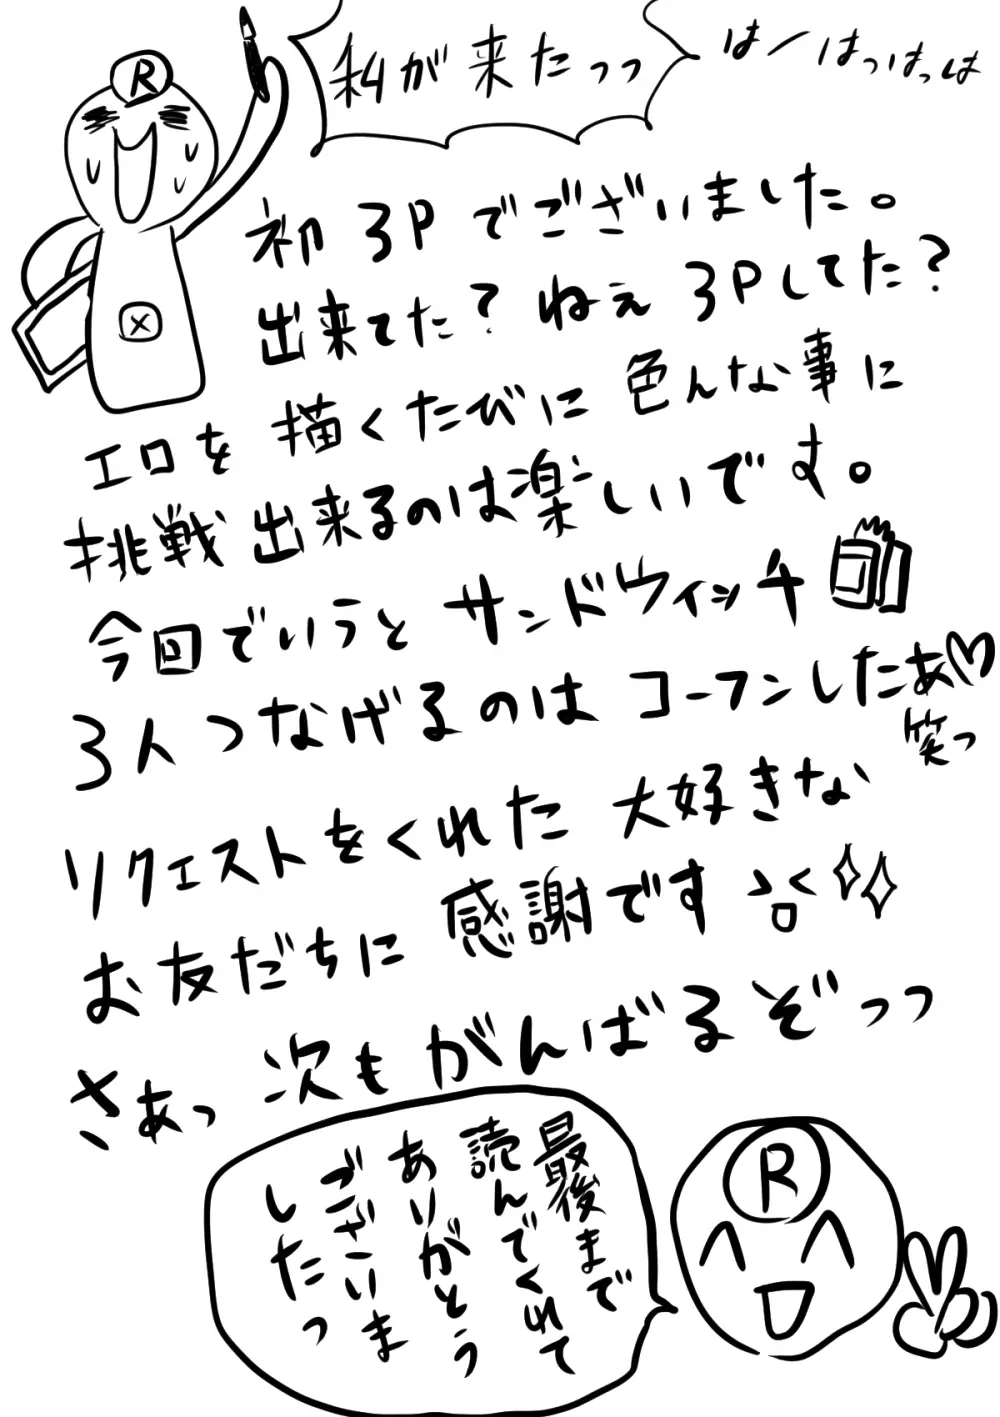 R
私が来たっっ
はーはっはっは
初3Pでございました。
出来てた?ねぇ 3Pしてた?
エロを描くたびに色んな事に
挑戦出来るのは楽しいです。
今回でいうとサンドウィッチ
3人つなげるのはコーフンしたぁ♡
笑っ
リクエストをくれた大好きな
お友だちに感謝です
さあっ次もがんばるぞっっ
最後まで
読んでくれて
ありがとう
ございま
したっ
R